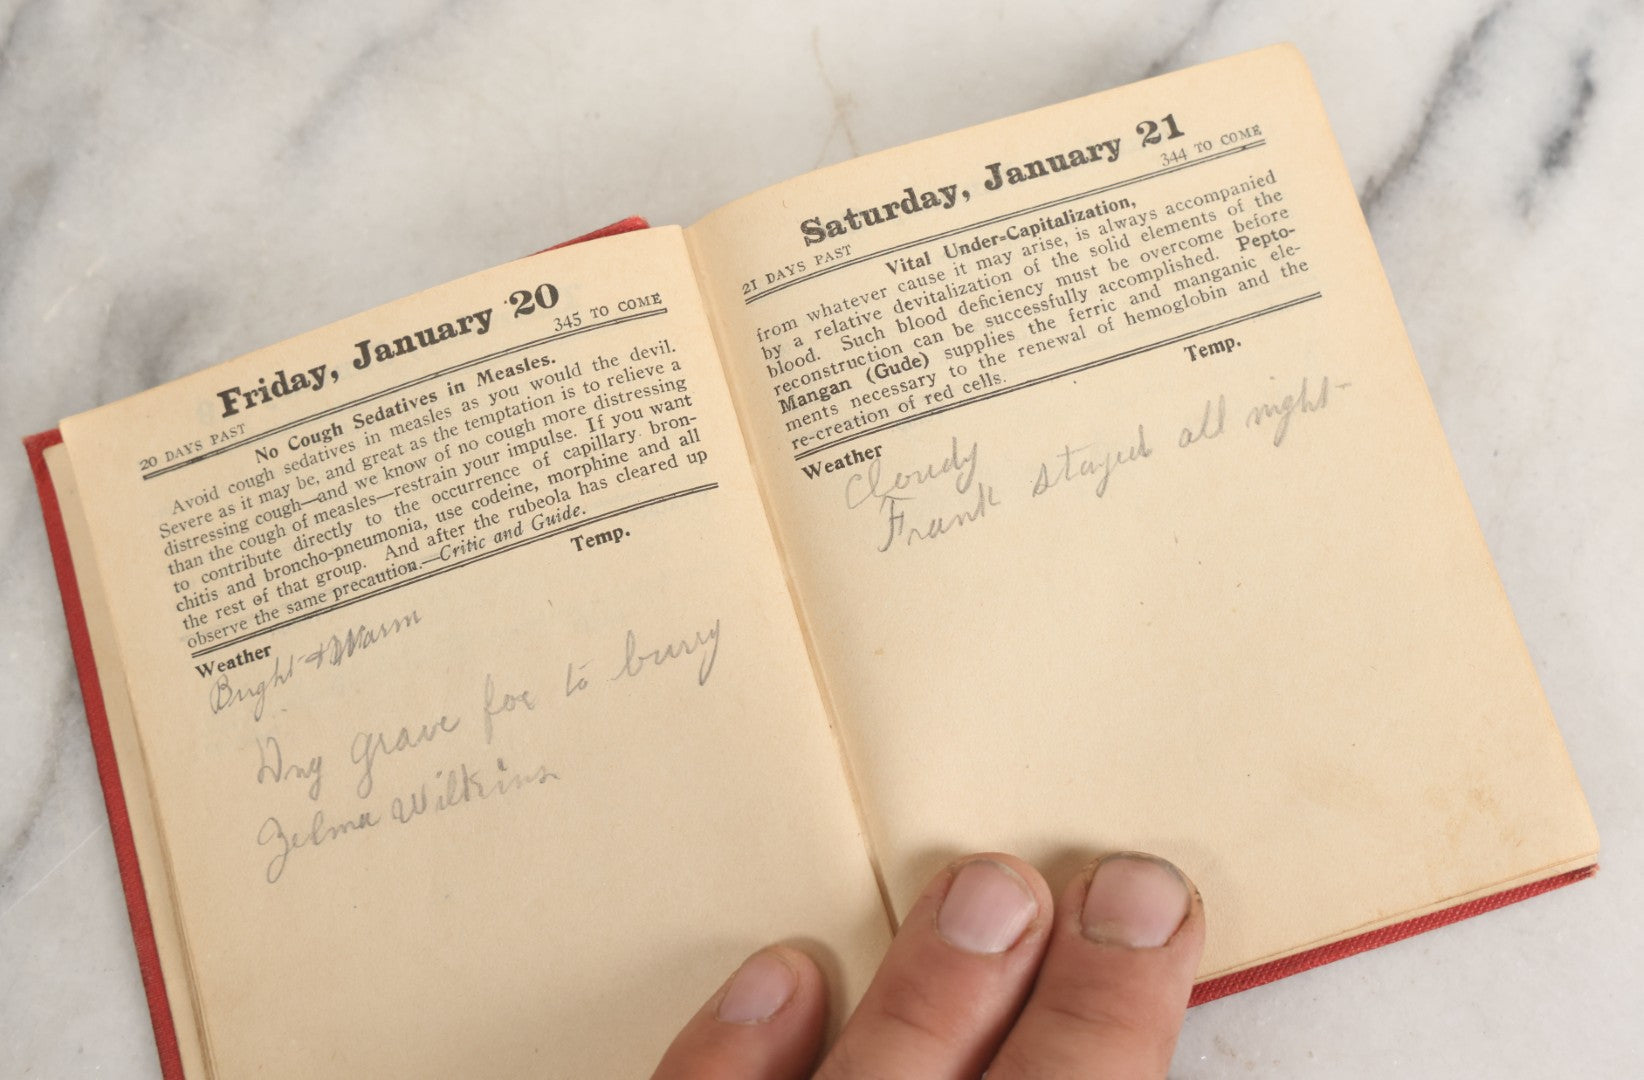 Friday, January 20
20 DAYS PAST 345 TO COME
No Cough Sedatives in Measles.
Avoid cough sedatives in measles as you would the devil.
Severe as it may be, and great as the temptation is to relieve a
distressing cough—and we know of no cough more distressing
than the cough of measles—restrain your impulse. If you want
to contribute directly to the occurrence of capillary bron-
chitis and broncho-pneumonia, use codeine, morphine and all
the rest of that group. And after the rubeola has cleared up
observe the same precaution.—Critic and Guide.
Weather Temp.
Bright + Warm
Dug grave foe to burry
Zelma Wilkins
Saturday, January 21
21 DAYS PAST 344 TO COME
Vital Under-Capitalization,
from whatever cause it may arise, is always accompanied
by a relative devitalization of the solid elements of the
blood. Such blood deficiency must be overcome before
reconstruction can be successfully accomplished. Pepto-
Mangan (Gude) supplies the ferric and manganic ele-
ments necessary to the renewal of hemoglobin and the
re-creation of red cells.
Weather Temp.
Cloudy
Frank stayed all night-